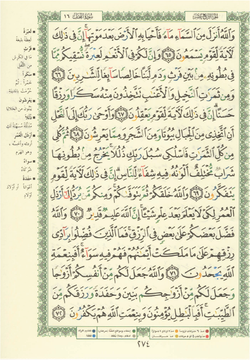 سورة النحل ١٦
وَاللَّهُ أَنزَلَ مِنَ السَّمَاءِ مَاءً فَأَحْيَا بِهِ الْأَرْضَ بَعْدَ مَوْتِهَا إِنَّ فِي ذَٰلِكَ
لَآيَةً لِّقَوْمٍ يَسْمَعُونَ ٦٥ وَإِنَّ لَكُمْ فِي الْأَنْعَٰمِ لَعِبْرَةً نُّسْقِيكُم مِّمَّا
فِي بُطُونِهِ مِن بَيْنِ فَرْثٍ وَدَمٍ لَّبَنًا خَالِصًا سَائِغًا لِّلشَّٰرِبِينَ ٦٦
وَمِن ثَمَرَٰتِ النَّخِيلِ وَالْأَعْنَٰبِ تَتَّخِذُونَ مِنْهُ سَكَرًا وَرِزْقًا حَسَنًا
إِنَّ فِي ذَٰلِكَ لَآيَةً لِّقَوْمٍ يَعْقِلُونَ ٦٧ وَأَوْحَىٰ رَبُّكَ إِلَى النَّحْلِ
أَنِ اتَّخِذِي مِنَ الْجِبَالِ بُيُوتًا وَمِنَ الشَّجَرِ وَمِمَّا يَعْرِشُونَ ٦٨ ثُمَّ كُلِي
مِن كُلِّ الثَّمَرَٰتِ فَاسْلُكِي سُبُلَ رَبِّكِ ذُلُلًا يَخْرُجُ مِن بُطُونِهَا
شَرَابٌ مُّخْتَلِفٌ أَلْوَٰنُهُ فِيهِ شِفَاءٌ لِّلنَّاسِ إِنَّ فِي ذَٰلِكَ لَآيَةً لِّقَوْمٍ
يَتَفَكَّرُونَ ٦٩ وَاللَّهُ خَلَقَكُمْ ثُمَّ يَتَوَفَّىٰكُمْ وَمِنكُم مَّن يُرَدُّ إِلَىٰ أَرْذَلِ
الْعُمُرِ لِكَيْ لَا يَعْلَمَ بَعْدَ عِلْمٍ شَيْئًا إِنَّ اللَّهَ عَلِيمٌ قَدِيرٌ ٧٠ وَاللَّهُ
فَضَّلَ بَعْضَكُمْ عَلَىٰ بَعْضٍ فِي الرِّزْقِ فَمَا الَّذِينَ فُضِّلُوا بِرَادِّي
رِزْقِهِمْ عَلَىٰ مَا مَلَكَتْ أَيْمَٰنُهُمْ فَهُمْ فِيهِ سَوَاءٌ أَفَبِنِعْمَةِ
اللَّهِ يَجْحَدُونَ ٧١ وَاللَّهُ جَعَلَ لَكُم مِّنْ أَنفُسِكُمْ أَزْوَٰجًا
وَجَعَلَ لَكُم مِّنْ أَزْوَٰجِكُم بَنِينَ وَحَفَدَةً وَرَزَقَكُم مِّنَ
الطَّيِّبَٰتِ أَفَبِالْبَٰطِلِ يُؤْمِنُونَ وَبِنِعْمَتِ اللَّهِ هُمْ يَكْفُرُونَ ٧٢
٢٧٤